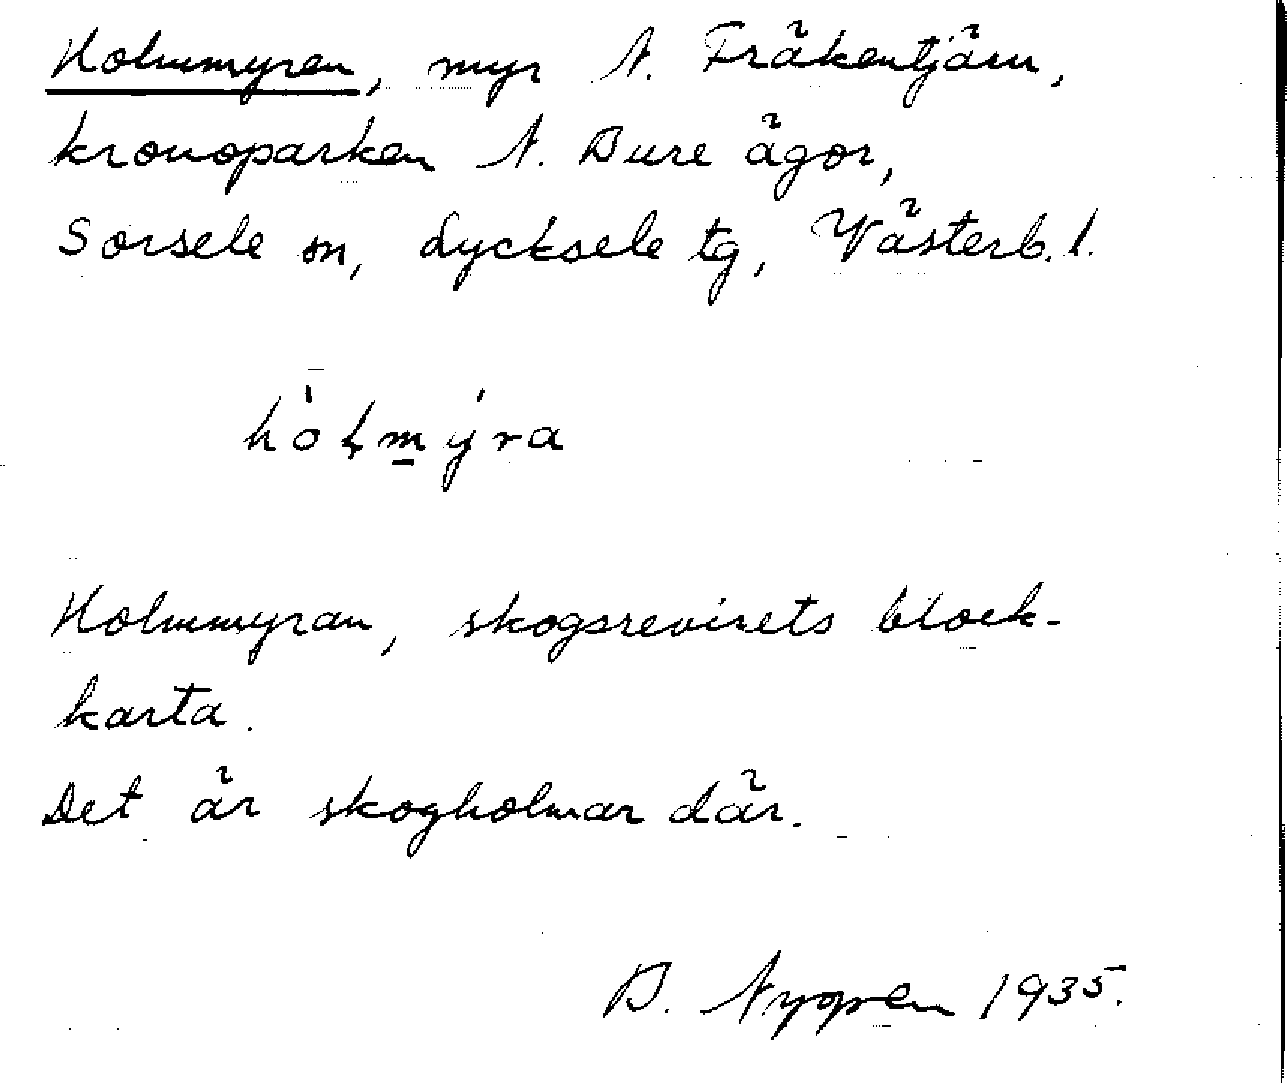 Holmmyren, myr N. Fräkentjärn,
kronoparken N. Bure ägor,
Sorsele sn, Lycksele tg, Västerb. l.
hòłm̲ýra
Holmmyran, skogsrevirets block-
karta.
Det är skogholmar där.
B. Nygren 1935.